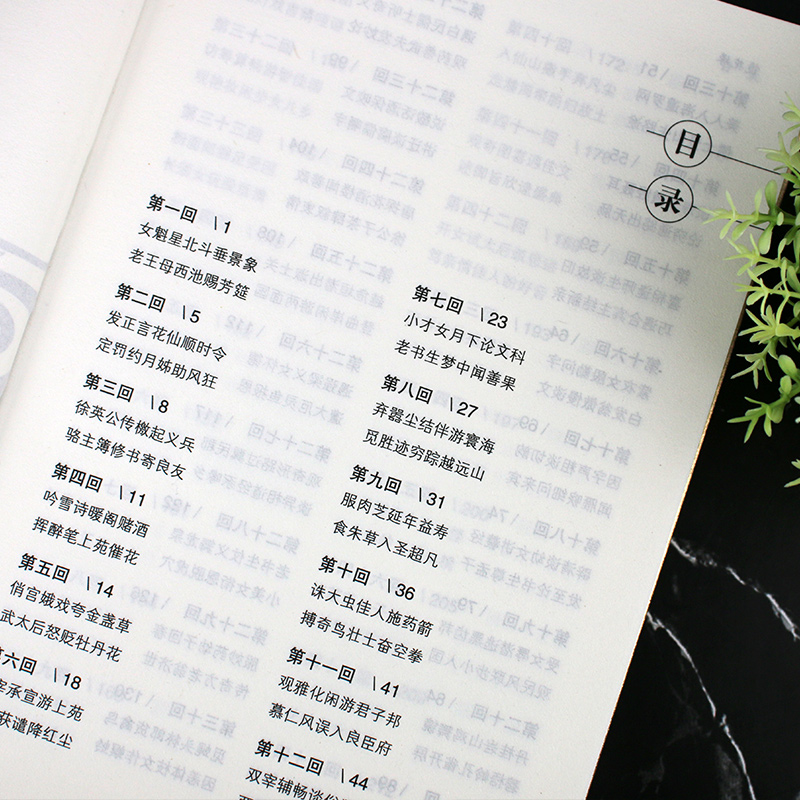 目
录
第一回 \1
女魁星北斗垂景象
老王母西池赐芳筵
第二回 \5
发正言花仙顺时令
定罚约月姊助风狂
第三回 \8
徐英公传檄起义兵
骆主簿修书寄良友
第四回 \11
吟雪诗暖阁赌酒
挥醉笔上苑催花
第五回 \14
俏宫娥戏夸金盏草
武太后怒贬牡丹花
六回 \18
宰承宣游上苑
获谴降红尘
第七回 \23
小才女月下论文科
老书生梦中闻善果
第八回 \27
弃嚣尘结伴游寰海
觅胜迹穷踪越远山
第九回 \31
服肉芝延年益寿
食朱草入圣超凡
第十回 \36
诛大虫佳人施药箭
搏奇鸟壮士奋空拳
第十一回 \41
观雅化闲游君子邦
慕仁风误入良臣府
第十二回 \44
双宰辅畅谈俗